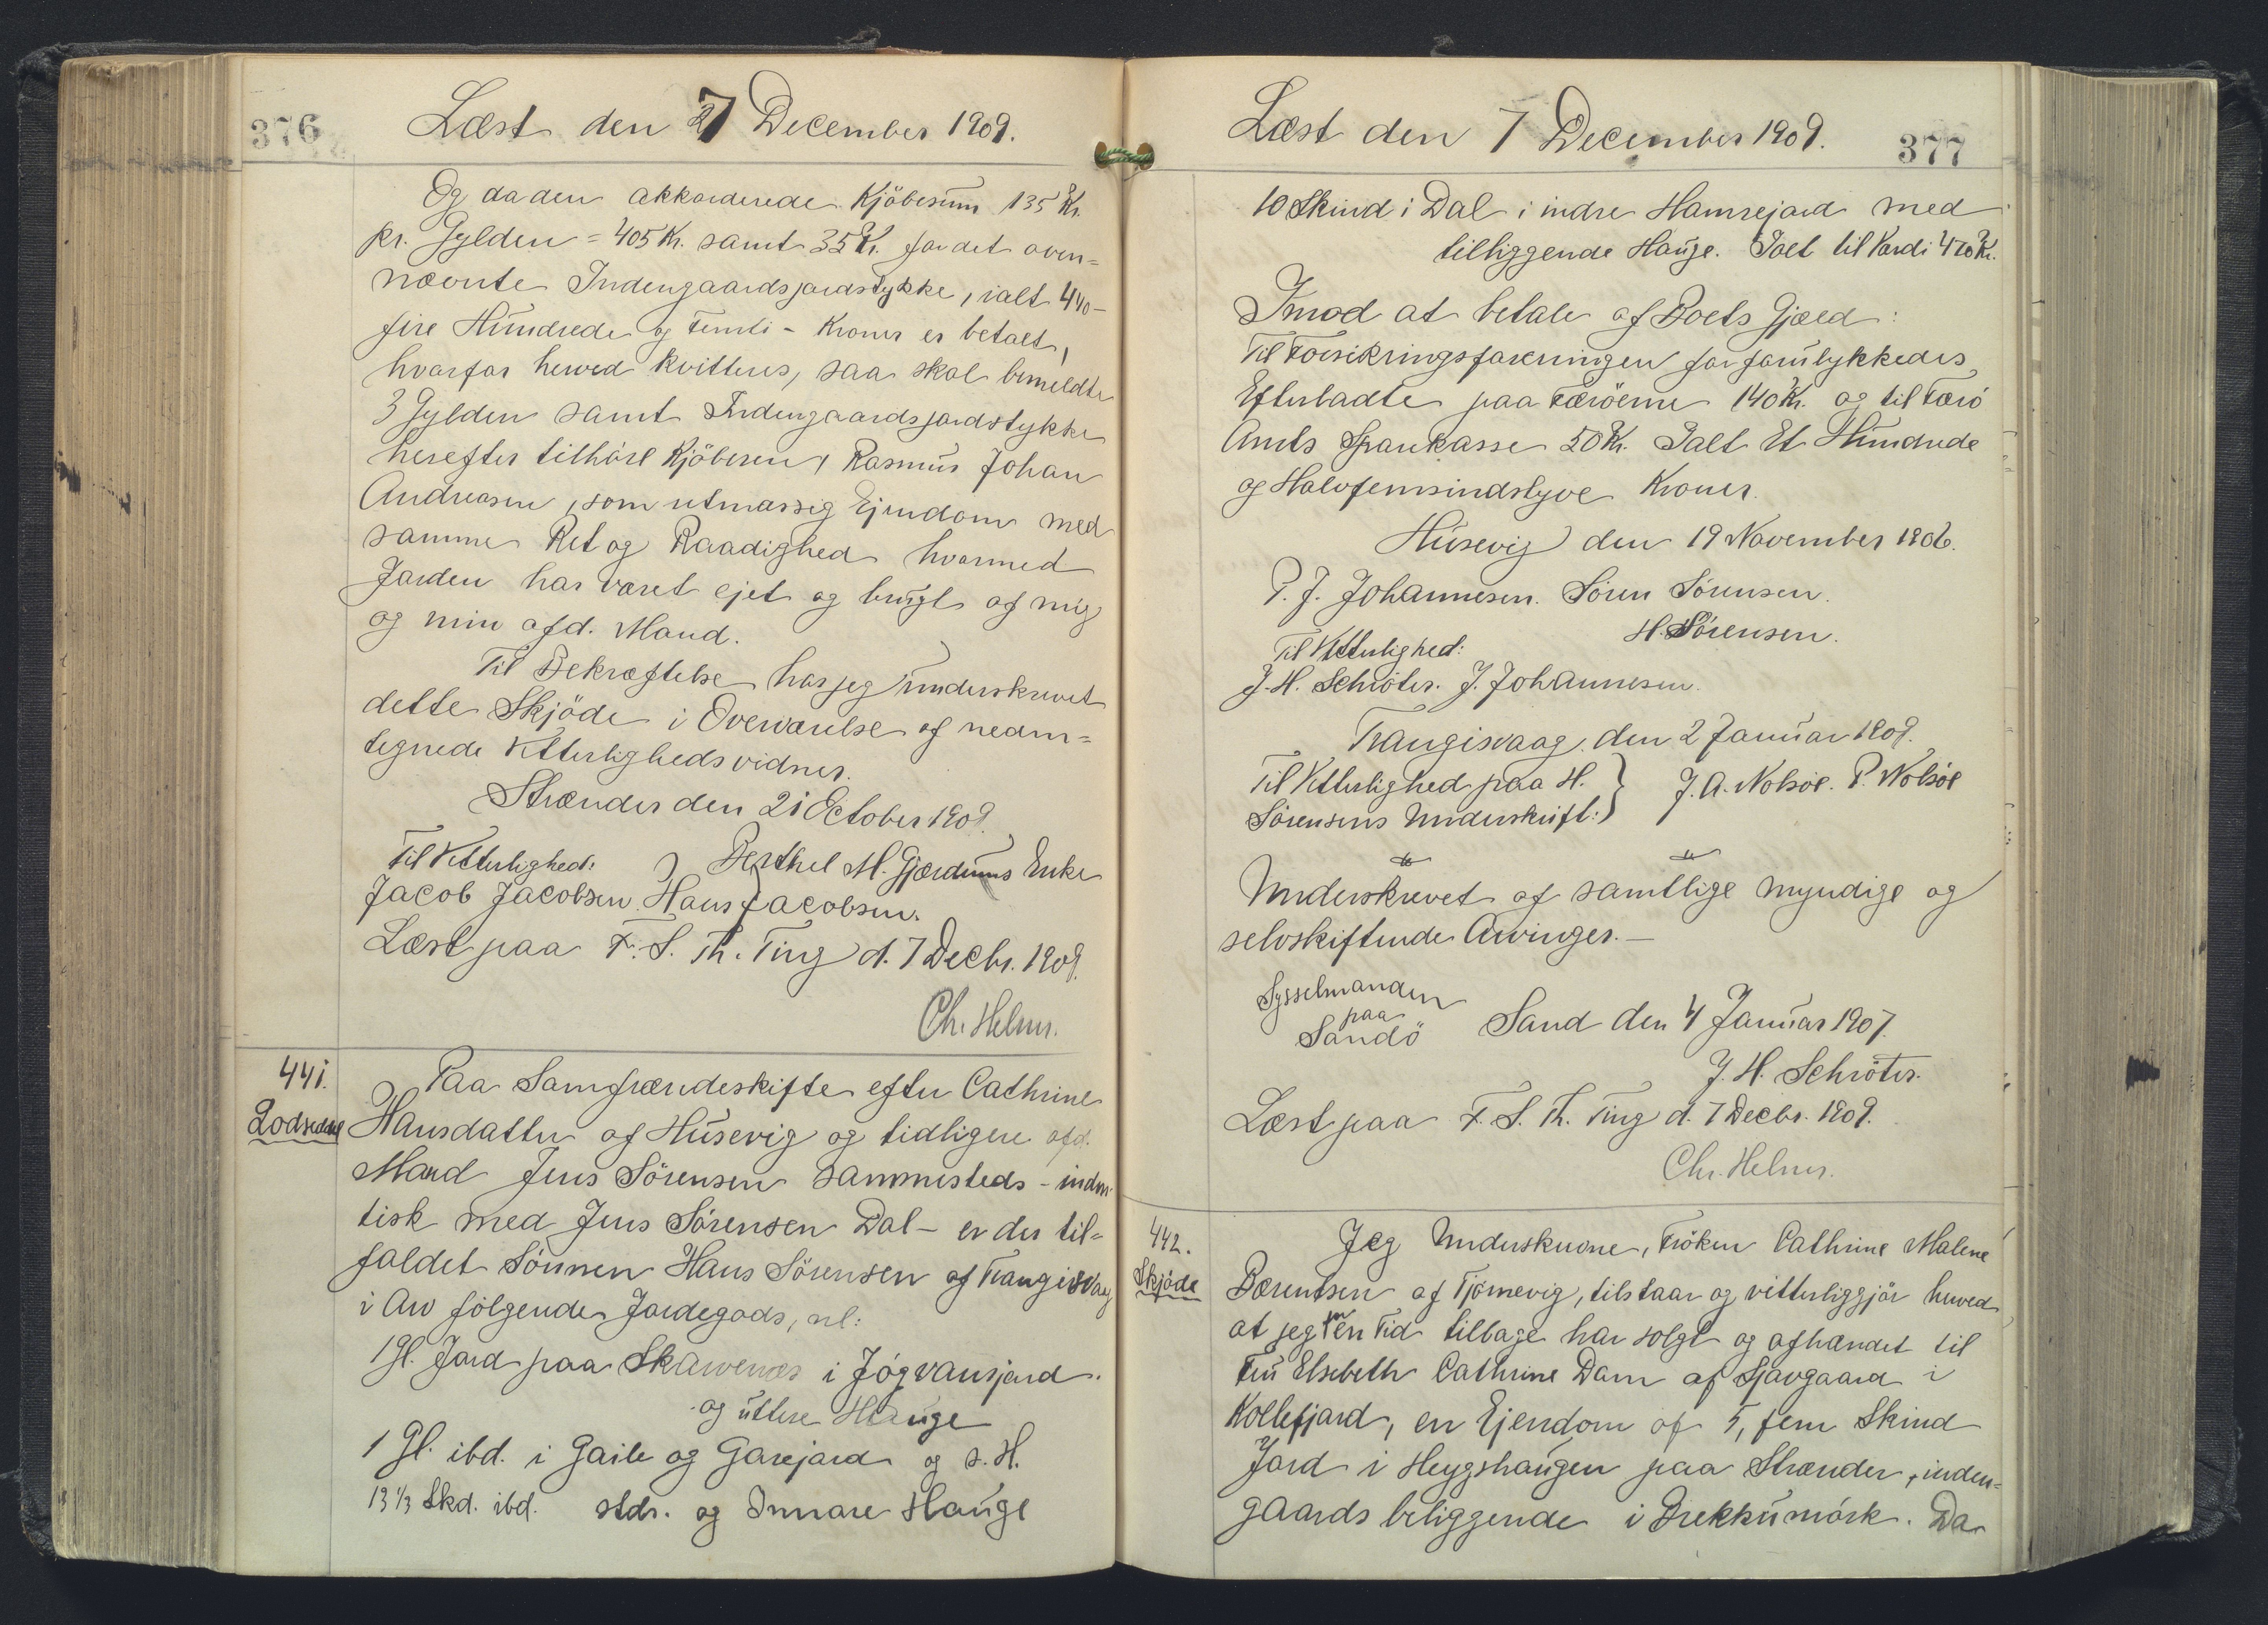 376
Læst den 7 December 1909.
Og da den akkorderede Kjöbesum 135 Kr.
pr. Gylden = 405 Kr. samt 35 Kr. for det oven=
nævnte Indengaardsjordstykke, ialt 440 -
fire Hundrede og Femti - Kroner er betalt,
hvorfor herved kvitteres, saa skal bemeldte
3 Gylden samt Indengaardsjordstykke
herefter tilhöre Kjöberen, Rasmus Johan
Andreasen, som retmæssig Ejendom med
samme Ret og Raadighed hvormed
Jorden har været ejet og brugt af mig
og min afd. Mand.
Til Bekræftelse har jeg underskrevet
dette Skjöde i Overværelse af neden=
tegnede Vitterlighedsvidner.
Strænder den 21 October 1909.
Til Vitterlighed: Berthel M. Gjærdums Enke
Jacob Jacobsen. Hans Jacobsen.
Læst paa F. S. Th. Ting d. 7 Decbr. 1909.
Ch. Helms.
441.
Lodseddel
Paa Samfrændeskifte efter Cathrine
Hansdatter af Húsevig og tidligere afd.
Mand Jens Sörensen sammesteds - inden
tisk med Jens Sörensen Dal - er der til=
faldet Sönnen Hans Sörensen af Trangisvaag
i Arv fölgende Jordegods, nl:
1 Gl. Jord paa Skarvenæs i Jógvansjord
og úttere Hauge
1 Gl. ibd. i Gaile og Garejord og s. H.
13 1/3 Skd. ibd. stds. og Innare Hauge
Læst den 7 December 1909.
377
10 Skind i Dal i indre Hamrejord med
tilliggende Hauge. Ialt til Værdi 470 Kr.
Imod at betale af Boets Gjæld:
Til Forsikringsforeningen for forulykkedes
Efterladte paa Færöerne 140 Kr. og til Færö
Amts Sparekasse 50 Kr. Ialt Et Hundrede
og Halvfemsindstyve Kroner.
Húsevig den 19 November 1906.
P. J. Johannesen. Sören Sörensen.
H. Sörensen.
Til Vitterlighed:
J. H. Schröter. J. Johannesen.
Trangisvaag den 2 Januar 1909.
Til Vitterlighed paa H. } J. A. Nolsöe. P. Nolsöe
Sörensens Underskrift:
Underskrevet af samtlige myndige og
selvskiftende Arvinger. -
Sysselmanden
paa
Sandö
Sand den 4 Januar 1907.
J. H. Schröter.
Læst paa F. S. Th. Ting d. 7 Decbr. 1909.
Chr. Helms.
442.
Skjöde
Jeg Underskrevne, Fröken Cathrine Malene
Bærentsen af Tjörnevig, tilstaar og vitterliggjör herved
at jeg for en Tid tilbage har solgt og afhændet til
Fru Elsebeth Cathrine Dam af Sjavgaard i
Kollefjord, en Ejendom af 5, fem Skind
Jord i Heygshaugen paa Strænder, inden=
gaards beliggende i Brekkumörk. Da